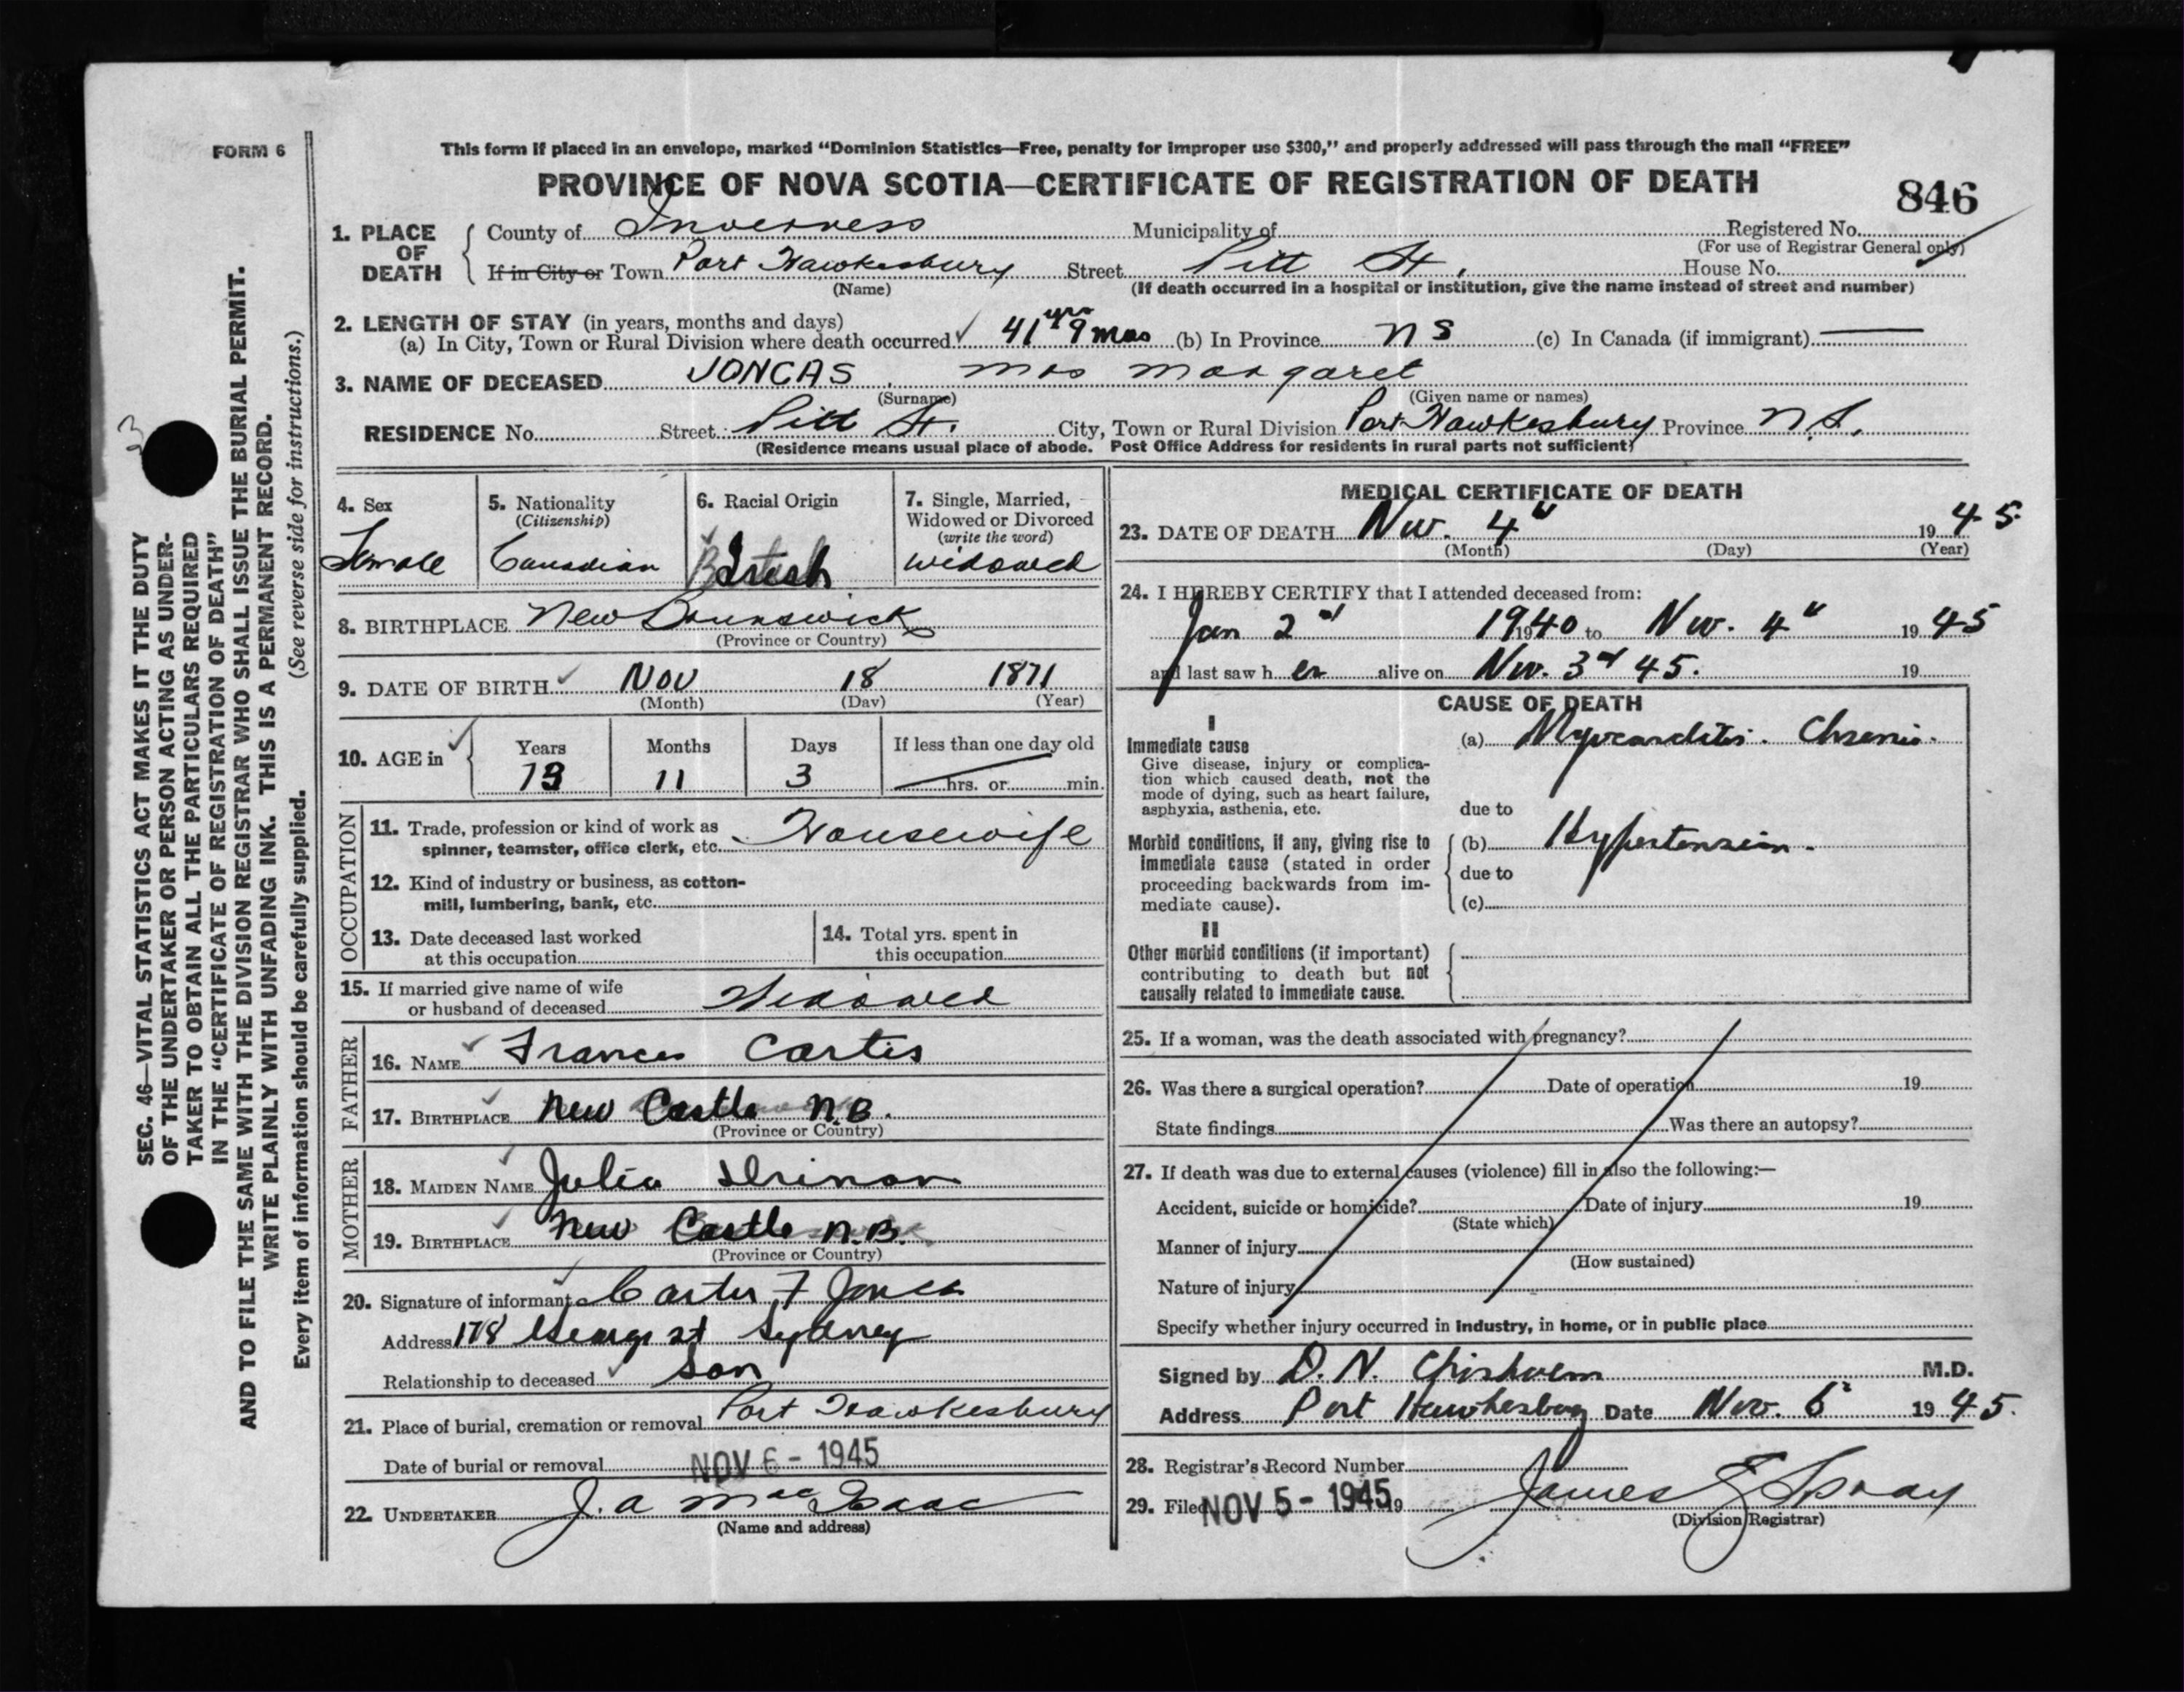 FORM 6
This form if placed in an envelope, marked "Dominion Statistics—Free, penalty for improper use $300," and properly addressed will pass through the mail "FREE"
PROVINCE OF NOVA SCOTIA—CERTIFICATE OF REGISTRATION OF DEATH
846
1. PLACE OF DEATH County of Inverness Municipality of Registered No.
(For use of Registrar General only)
If in City or Town Port Hawkesbury Street Pitt St. House No.
(Name) (If death occurred in a hospital or institution, give the name instead of street and number)
2. LENGTH OF STAY (in years, months and days)
(a) In City, Town or Rural Division where death occurred 41 yrs 9 mos (b) In Province NS (c) In Canada (if immigrant)
3. NAME OF DECEASED JONCAS, Mrs Margaret
(Surname) (Given name or names)
RESIDENCE No. Street Pitt St. City, Town or Rural Division Port Hawkesbury Province N.S.
(Residence means usual place of abode. Post Office Address for residents in rural parts not sufficient)
4. Sex
Female
5. Nationality
(Citizenship)
Canadian
6. Racial Origin
Irish
7. Single, Married,
Widowed or Divorced
(write the word)
Widowed
8. BIRTHPLACE New Brunswick
(Province or Country)
9. DATE OF BIRTH Nov 18 1871
(Month) (Day) (Year)
10. AGE in Years Months Days If less than one day old
73 11 3 hrs. or min.
OCCUPATION
11. Trade, profession or kind of work as
spinner, teamster, office clerk, etc. Housewife
12. Kind of industry or business, as cotton-
mill, lumbering, bank, etc.
13. Date deceased last worked
at this occupation
14. Total yrs. spent in
this occupation
15. If married give name of wife
or husband of deceased Widowed
FATHER
16. NAME Frances
17. BIRTHPLACE New Castle N.B.
(Province or Country)
MOTHER
18. MAIDEN NAME Julia
19. BIRTHPLACE New Castle N.B.
(Province or Country)
20. Signature of informant Carter F
Address 178 George st Sydney
Relationship to deceased Son
21. Place of burial, cremation or removal Port Hawkesbury
Date of burial or removal NOV 6 - 1945
22. UNDERTAKER J. A MacIsaac
(Name and address)
MEDICAL CERTIFICATE OF DEATH
23. DATE OF DEATH Nov. 4" 1945
(Month) (Day) (Year)
24. I HEREBY CERTIFY that I attended deceased from:
Jan 2nd 1940 to Nov. 4" 1945
and last saw her alive on Nov. 3rd 45. 19
CAUSE OF DEATH
I
Immediate cause
Give disease, injury or complica-
tion which caused death, not the
mode of dying, such as heart failure,
asphyxia, asthenia, etc.
(a) Myocarditis. Chronic.
due to
Morbid conditions, if any, giving rise to
immediate cause (stated in order
proceeding backwards from im-
mediate cause).
(b) Hypertension.
due to
(c)
II
Other morbid conditions (if important)
contributing to death but not
causally related to immediate cause.
25. If a woman, was the death associated with pregnancy?
26. Was there a surgical operation? Date of operation 19
State findings Was there an autopsy?
27. If death was due to external causes (violence) fill in also the following:—
Accident, suicide or homicide? Date of injury 19
(State which)
Manner of injury
(How sustained)
Nature of injury
Specify whether injury occurred in industry, in home, or in public place
Signed by D. N. Chisholm M.D.
Address Port Hawkesbury Date Nov. 6 1945.
28. Registrar's Record Number
29. Filed NOV 5 - 1945 19 James
(Division Registrar)
SEC. 46—VITAL STATISTICS ACT MAKES IT THE DUTY
OF THE UNDERTAKER OR PERSON ACTING AS UNDER-
TAKER TO OBTAIN ALL THE PARTICULARS REQUIRED
IN THE "CERTIFICATE OF REGISTRATION OF DEATH"
AND TO FILE THE SAME WITH THE DIVISION REGISTRAR WHO SHALL ISSUE THE BURIAL PERMIT.
WRITE PLAINLY WITH UNFADING INK. THIS IS A PERMANENT RECORD.
Every item of information should be carefully supplied. (See reverse side for instructions.)